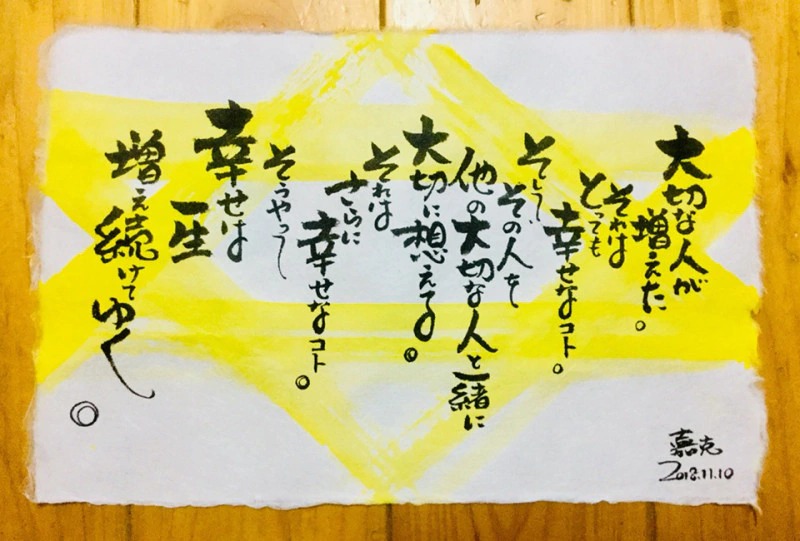 大切な人が
増えた。
それは
とっても
幸せなコト。
そして、
その人を
他の大切な人と一緒に
大切に想えてる。
それは
さらに
幸せなコト。
そうやって
幸せは
一生
増え続けてゆく。
嘉克
2018.11.10